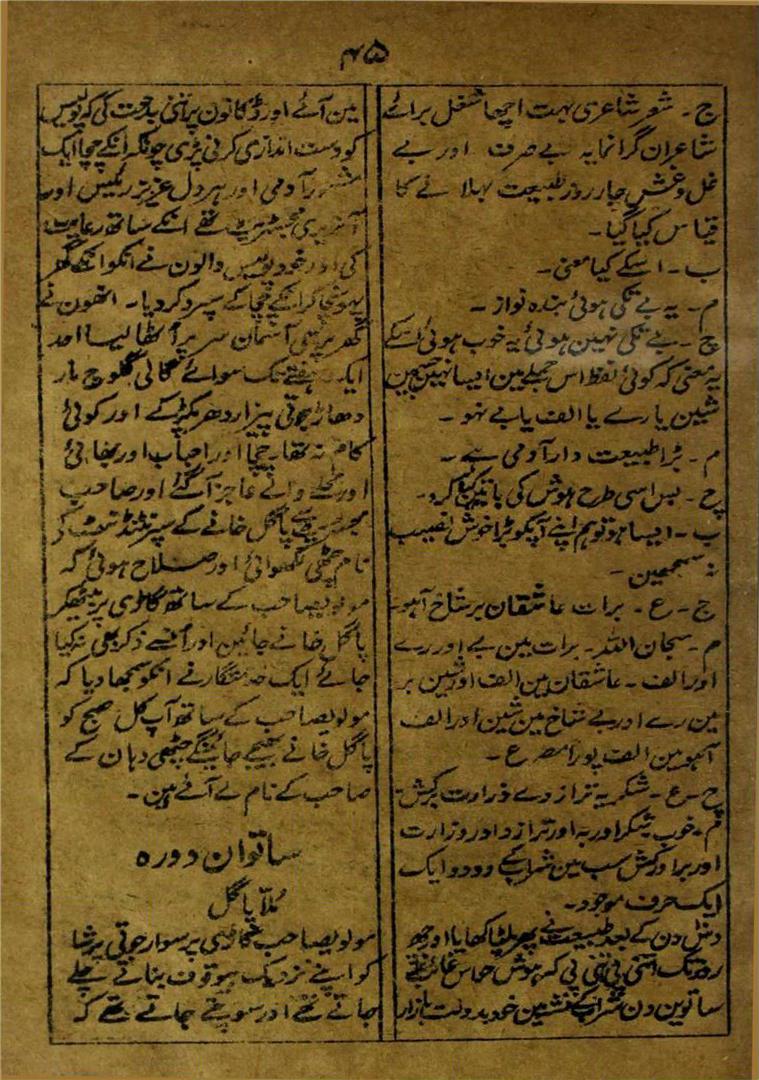 ۴۵
ج ۔ شعر شاعری بہت اچھا شغل برائے
شاعران گرانمایہ بے صرف اور بے
غل و غش چار روز طبیعت بہلانے کا
قیاس کیا گیا۔
ب ۔ اسکے کیا معنی۔
م ۔ یہ بے تکی ہوئی بندہ نواز ۔
ج ۔ بے تکی نہین ہوئی یہ خوب ہوئی اسکے
یہ معنی کہ کوئی لفظ اس جملے مین ایسا نہین جسمین
شین یا رے یا الف یا بے نہو ۔
م ۔ بڑا طبیعت دار آدمی ہے ۔
ج ۔ بس اسی طرح ہوش کی باتین کیا کرو۔
ب ۔ ایسا ہو تو ہم اپنے آپکو بڑا خوش نصیب
نہ سمجھین ۔
ج ۔ ع ۔ برات عاشقان بر شاخ آہو۔
م ۔ سبحان اللہ ۔ برات مین بے اور رے
اور الف ۔ عاشقان مین الف اور شین بر
مین رے اور بے شاخ مین شین اور الف
آہو مین الف پورا مصرع ۔
ج ۔ ع ۔ شکر بہ ترازوے وزارت برکش
م ۔ خوب شکر اور بہ اور ترازو اور وزارت
اور بر اور کش سب مین شراب کے دو دو ایک
ایک حرف موجود۔
دس دن کے بعد طبیعت نے پھر پلٹا کھایا اور چھ
روز تک اتنی پی اتنی پی کہ ہوش حواس غائب تھے
ساتوین دن شراب کے نشے مین خود بدولت بازار
مین آئے اور دُکانون پر اتنی بدعت کی کہ پولیس
کو دست اندازی کرنی پڑی چونکہ انکے چچا ایک
مشہور آدمی اور ہر دل عزیز رئیس اور
آنریری مجسٹریٹ تھے انکے ساتھ رعایت
کی اور خود پولیس والون نے انکو انکے گھر
پہونچا کر انکے چچا کے سپرد کر دیا ۔ انھون نے
گھر پر بھی آسمان سر پر اُٹھا لیا اور
ایک ہفتے تک سوائے گالی گلوج مار
دھاڑ جوتی پیزار دھر پکڑ کے اور کوئی
کام نہ تھا ۔ چچا اور احباب اور بھائی
اور محلے والے عاجز آ گئے اور صاحب
مجسٹریٹ سے پاگل خانے کے سپرنٹنڈنٹ کے
نام چٹھی لکھوائی اور صلاح ہوئی کہ
مولویصاحب کے ساتھ گاڑی پر بیٹھکر
پاگل خانے جائین اور اُنسے ذکر بھی نہ کیا
جائے ایک خدمتگار نے انکو سمجھا دیا کہ
مولویصاحب کے ساتھ آپ کل صبح کو
پاگل خانے بھیجے جائینگے چٹھی وہان کے
صاحب کے نام لے آئے ہین ۔
ساتوان دورہ
مُلّا پاگل
مولویصاحب گاڑی پر سوار جوتی پرشا
کو اپنے نزدیک بیوقوف بناتے چلے
جاتے تھے اور سوچتے جاتے تھے کہ